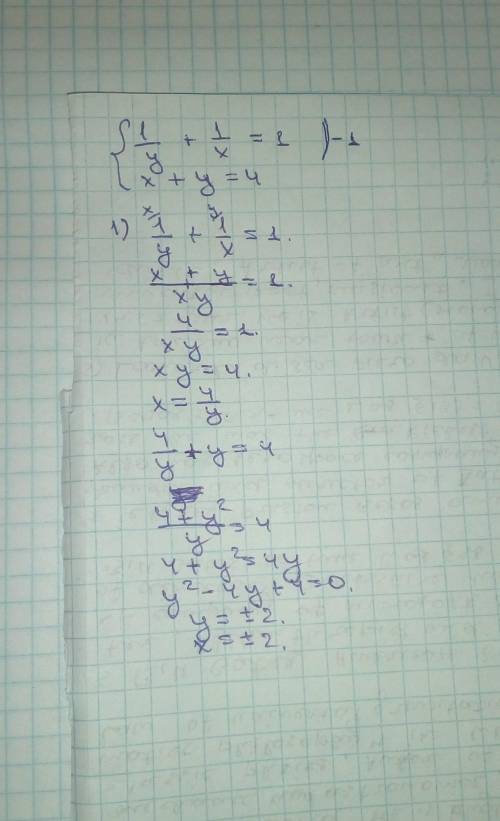 { 1/y + 1/x = 1 ) -1
x + y = 4
1) x 1/y + y 1/x = 1.
(x + y)/(xy) = 1.
4/(xy) = 1.
xy = 4.
x = 4/y.
4/y + y = 4
(4 + y²)/y = 4
4 + y² = 4y
y² - 4y + 4 = 0.
y = ± 2.
x = ± 2.